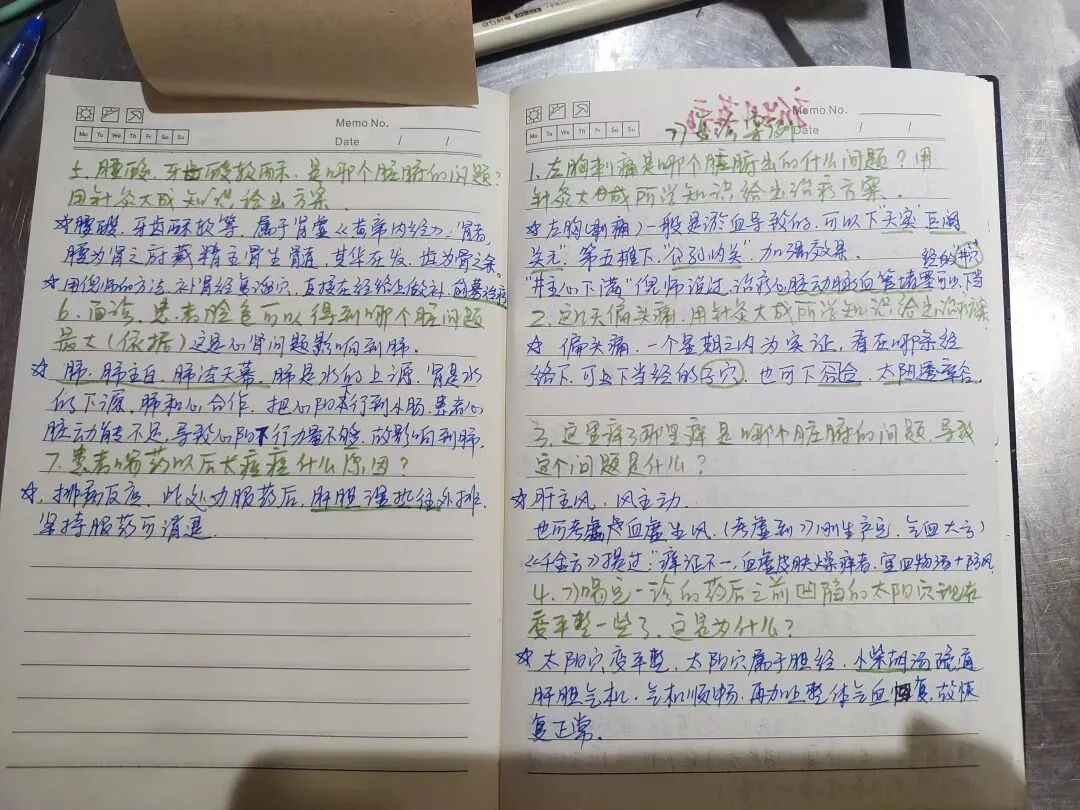 Memo No.
Mo Tu We Th Fr Sa Su
Date / /
5. 腰酸、牙齿酸软麻、是哪个脏腑的问题?
用针灸大成知识给出方案
☆腰酸、牙齿酥软等,属于肾虚《黄帝内经》:肾者,
腰为肾之府藏精主骨生髓,其华在发,齿为骨之余.
☆用倪师的方法,补肾经复溜穴,直接在经络上做补,
6. 面诊,患者脸色可以得到哪个脏问题
最大(依据)这是心肾问题影响到肺.
☆肺、肺主白,肺为天幕,肺是水的上源,肾是水
的下源,肺和心合作,把心阳奉行到小肠,患者心
脏动能不足,导致心阳下行力量不够,故影响到肺.
7. 患者喝药以后长痘痘什么原因?
☆、排病反应,此处为服药后,肝胆湿热往外排,
坚持服药可消退.
Memo No.
Mo Tu We Th Fr Sa Su
Date / /
1. 左胸刺痛是哪个脏腑出的什么问题?用
针灸大成所学知识给出治疗方案.
☆左胸(刺痛)一般是淤血导致的,可以下"天突"巨阙
关元"第五椎下,"公孙内关"加强效果.
经的井穴
"井主心下满"倪师说过,治疗心脏动脉血管堵塞可以下当
2. 这几天偏头痛,用针灸大成所学知识给出治疗方案
☆ 偏头痛,一个星期之内为实证,看在哪条经
络下,可上下当经的子穴,也可下合谷、太阳透率谷.
3. 这里痒了那里痒是哪个脏腑的问题,导致
这个问题是什么?
☆肝主风,风主动.
也可考虑血虚生风,(考虑到刚生产完,气血大亏)
《千金方》提过:痒证不一,血虚皮肤燥痒者,宜四物汤+防风
4. 喝完一诊的药后之前凹陷的太阳穴现在
变平整一些了,这是为什么?
☆太阳穴变平整,太阳穴属于胆经,小柴胡汤疏通
肝胆气机,气机顺畅,再加上整体气血恢复,故恢
复正常.